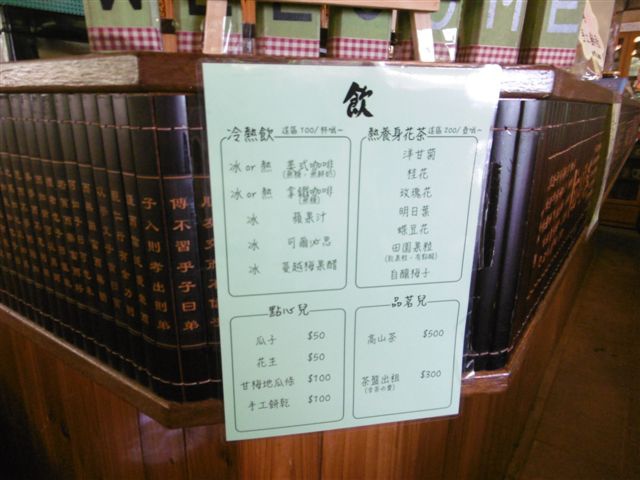 WELCOME
飲
冷熱飲 這區100/杯哦~
冰 or 熱 美式咖啡
(無糖、無鮮奶)
冰 or 熱 拿鐵咖啡
(無糖)
冰 蘋果汁
冰 可爾沁思
冰 蔓越梅果醋
熱養身花茶 這區200/壺哦~
洋甘菊
桂花
玫瑰花
明日葉
蝶豆花
田園果粒
自釀梅子
點心兒
瓜子 $50
花生 $50
甘梅地瓜條 $100
手工餅乾 $100
品茗兒
高山茶 $500
茶盤出租 $300
子入則孝出則弟
傳不習乎子曰弟